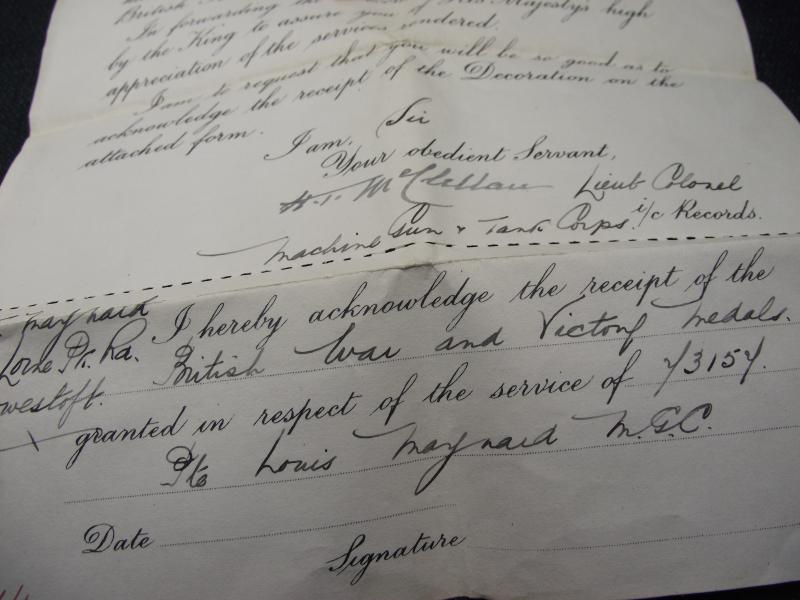 British
In forwarding the Majesty's high
by the King to assure you of
appreciation of the services rendered.
I am to request that you will be so good as to
acknowledge the receipt of the Decoration on the
attached form.
I am, Sir
Your obedient Servant,
Lieut Colonel
Machine Gun & Tank Corps. i/c Records.
Maynard
I hereby acknowledge the receipt of the
Lorne Pk. Rd. British War and Victory Medals.
westoft.
granted in respect of the service of 73157.
Pte Louis Maynard M.G.C.
Date
Signature